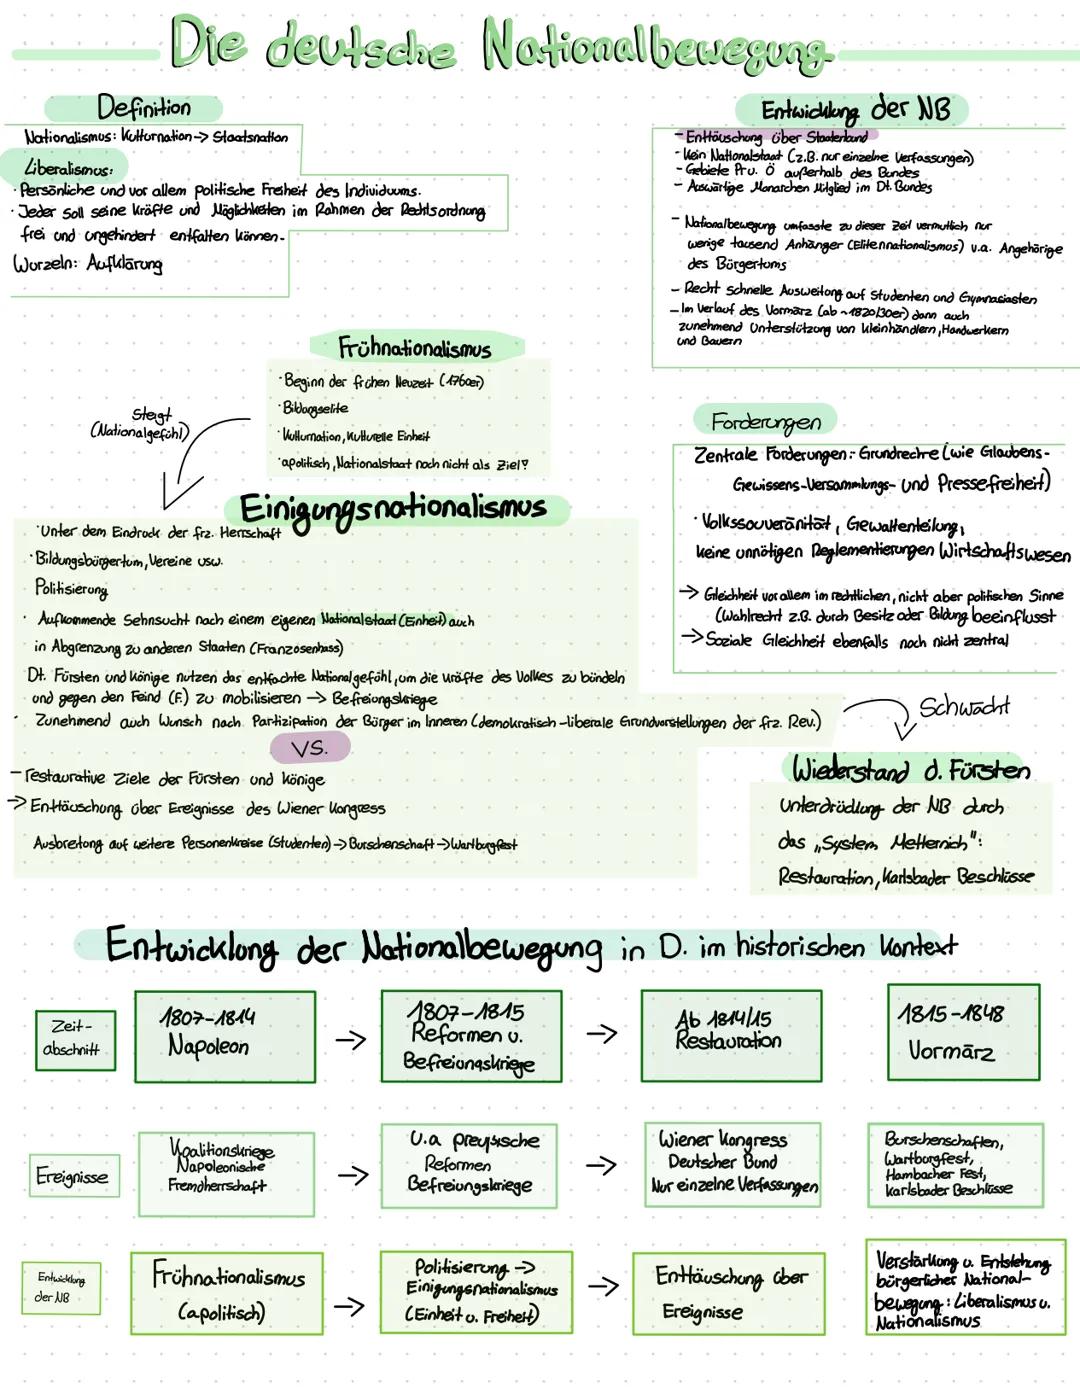 Die deutsche Nationalbewegung
Definition
Nationalismus: Kulturnation → Staatsnation
Liberalismus:
· Persönliche und vor allem politische Freiheit des Individuums.
· Jeder soll seine Kräfte und Möglichkeiten im Rahmen der Rechtsordnung
frei und ungehindert entfalten können.
Wurzeln: Aufklärung
Entwicklung der NB
- Enttäuschung über Staatenbund
- Kein Nationalstaat (z.B. nur einzelne Verfassungen)
- Gebiete Pr u. Ö außerhalb des Bundes
- Auswärtige Monarchen Mitglied im Dt. Bundes
- Nationalbewegung umfasste zu dieser Zeit vermutlich nur
wenige tausend Anhänger (Elitennationalismus) v.a. Angehörige
des Bürgertums
- Recht schnelle Ausweitung auf Studenten und Gymnasiasten
- Im Verlauf des Vormärz (ab ~1820/30er) dann auch
zunehmend Unterstützung von Kleinhändlern, Handwerkern
und Bauern
Frühnationalismus
· Beginn der frühen Neuzeit (1760er)
· Bildungselite
· Kulturnation, Kulturelle Einheit
· apolitisch, Nationalstaat noch nicht als Ziel?
Steigt
(Nationalgefühl)
Forderungen
Zentrale Forderungen: Grundrechte (wie Glaubens-
Gewissens-Versammlungs- und Pressefreiheit)
· Volkssouveränität, Gewaltenteilung,
keine unnötigen Reglementierungen Wirtschaftswesen
→ Gleichheit vor allem im rechtlichen, nicht aber politischen Sinne
(Wahlrecht z.B. durch Besitz oder Bildung beeinflusst
→ Soziale Gleichheit ebenfalls noch nicht zentral
Einigungsnationalismus
· Unter dem Eindruck der frz. Herrschaft
· Bildungsbürgertum, Vereine usw.
Politisierung
· Aufkommende Sehnsucht nach einem eigenen Nationalstaat (Einheit) auch
in Abgrenzung zu anderen Staaten (Franzosenhass)
Dt. Fürsten und Könige nutzen das entfachte Nationalgefühl, um die Kräfte des Volkes zu bündeln
und gegen den Feind (F.) zu mobilisieren → Befreiungskriege
· Zunehmend auch Wunsch nach Partizipation der Bürger im Inneren (demokratisch-liberale Grundvorstellungen der frz. Rev.)
VS.
- restaurative Ziele der Fürsten und Könige
→ Enttäuschung über Ereignisse des Wiener Kongress
Ausbreitung auf weitere Personenkreise (Studenten) → Burschenschaft → Wartburgfest
Schwächt
Wiederstand d. Fürsten
Unterdrückung der NB durch
das „System Metternich":
Restauration, Karlsbader Beschlüsse
Entwicklung der Nationalbewegung in D. im historischen Kontext
Zeit-
abschnitt
1807-1814
Napoleon
→
1807-1815
Reformen u.
Befreiungskriege
→
Ab 1814/15
Restauration
1815-1848
Vormärz
Ereignisse
Koalitionskriege
Napoleonische
Fremdherrschaft
→
U.a preußische
Reformen
Befreiungskriege
→
Wiener Kongress
Deutscher Bund
Nur einzelne Verfassungen
Burschenschaften,
Wartburgfest,
Hambacher Fest,
Karlsbader Beschlüsse
Entwicklung
der NB
Frühnationalismus
(apolitisch)
→
Politisierung →
Einigungsnationalismus
(Einheit u. Freiheit)
→
Enttäuschung über
Ereignisse
Verstärkung u. Entstehung
bürgerlicher National-
bewegung: Liberalismus u.
Nationalismus